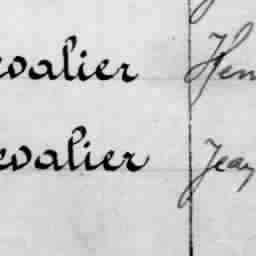 evalier Hen
evalier Jean